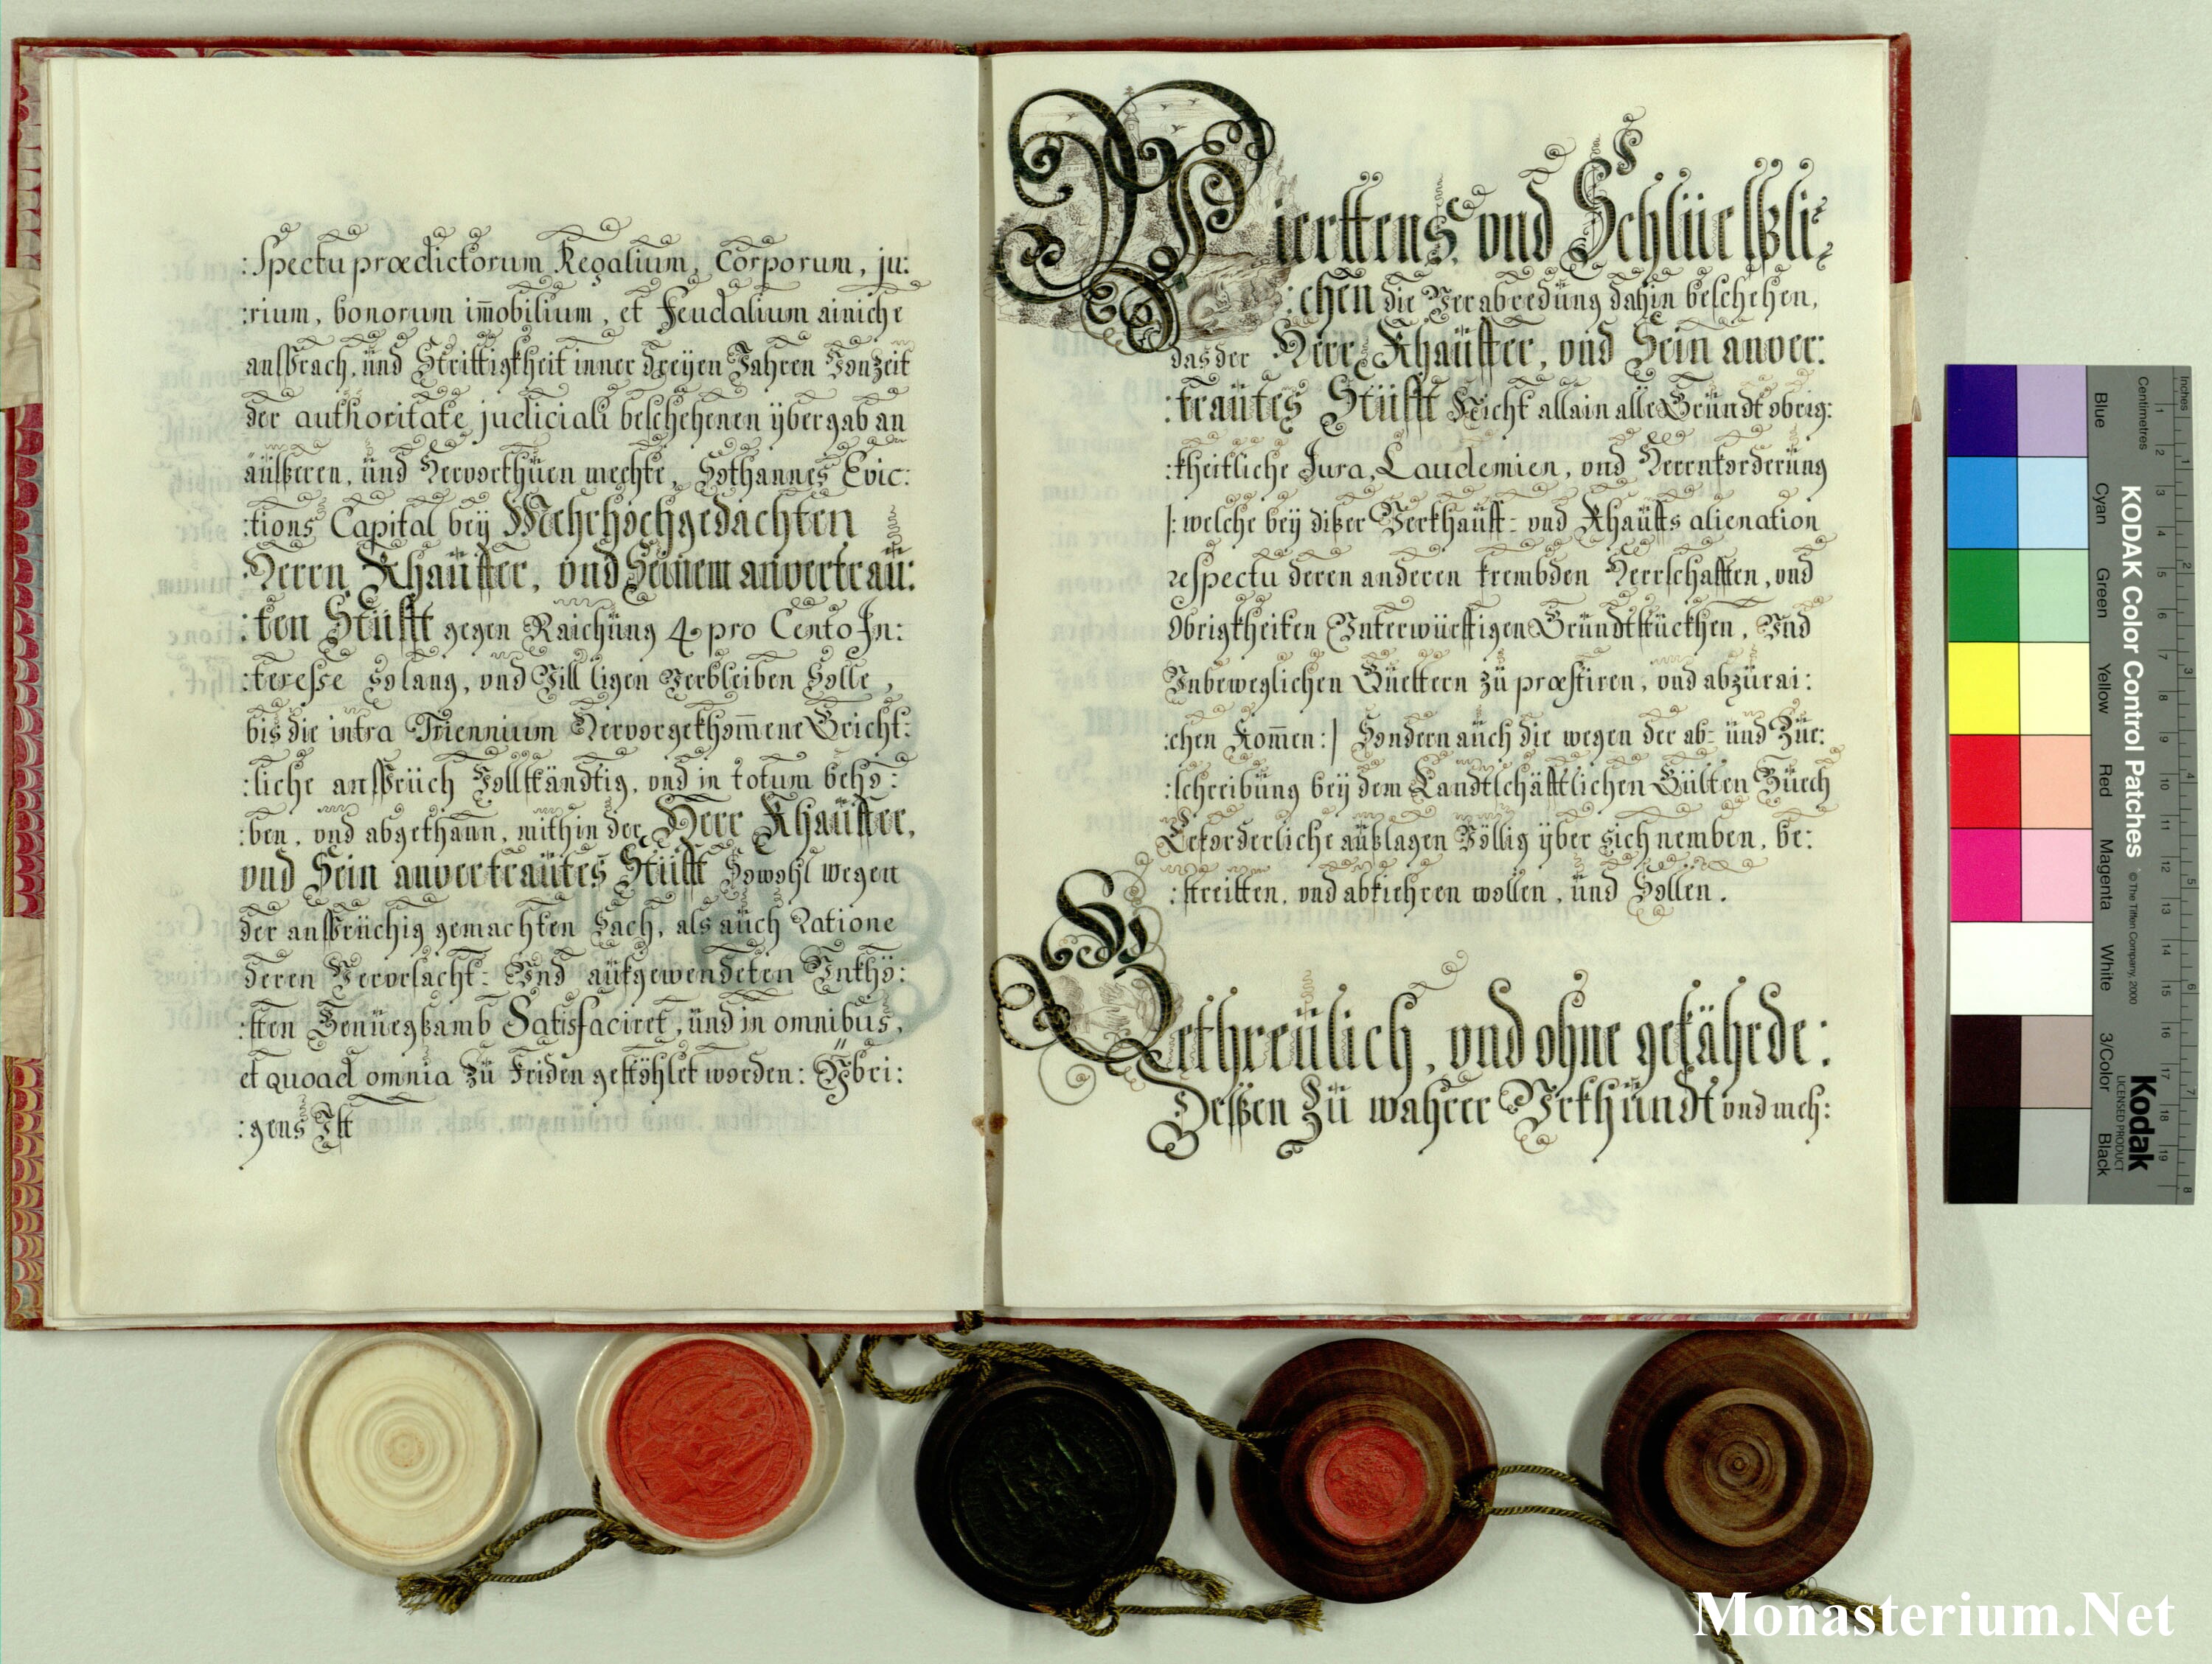 :spectu prædictorum Regalium, Corporum, ju:
:rium, bonorum im̅obilium, et Feudalium ainiche
ansprach, ünd Strittigkheit inner dreyen Jahren Vonzeit
der authoritate judiciali beschehenen ÿbergab an
äüsseren, ünd Hervorthüen mechte, Sothannes Evic:
:tions Capital beÿ Mehrhochgedachten
Herrn Khäüffer, vnd Seinem anvertrau:
:ten Stüfft gegen Raichüng 4 pro Cento In:
:teresse So lang, vnd Vill ligen Verbleiben Solle,
bis die intra Triennium Hervorgekhom̅ene Gricht:
:liche ansprüch Vollständtig, vnd in totum beho:
:ben, vnd abgethann, mithin der Herr Khäüffer,
vnd Sein anvertraütes Stüfft Sowohl wegen
der ansprüchig gemachten Sach, als aüch Ratione
deren Vervrsacht- Vnd aüfgewendeten Vnkhö:
:sten Genüegsamb Satisfaciret, ünd in omnibus,
et quoad omnia Zü Friden gestöhlet worden: Ÿbri:
:gens Ist
Vierttens, vnd Schlüesßli:
:chen die Verabredüng dahin beschehen,
das der Herr Khäüffer, vnd Sein anver:
:traütes Stüfft Nicht allain alle Gründtobrig:
:kheitliche Jura, Laudemien, vnd Herrnforderüng
|: welche beÿ diser Verkhäüff- vnd Khäüffs alienation
respectu deren anderen frembden Herrschafften, vnd
Obrigkheiten Vnterwürffigen Gründtstückhen, Vnd
Vnbeweglichen Güettern zü præstiren, vnd abzürai:
:chen Kom̅en :| Sondern aüch die wegen der ab- ünd Züe:
:schreibüng beÿ dem Landtschäfftlichen Gülten Büech
Erforderliche aüslagen Völlig ÿber sich nemben, be:
:streitten, vnd abfiehren wollen, ünd Sollen.
Gethreülich, vnd ohne gefährde:
Dessen Zü wahrer Vrkhündt vnd meh:
KODAK Color Control Patches
© The Tiffen Company, 2000
Kodak
LICENSED PRODUCT
Inches
Centimetres
Blue
Cyan
Green
Yellow
Red
Magenta
White
3/Color
Black
1 2 3 4 5 6 7 8 9 10 11 12 13 14 15 16 17 18 19
1 2 3 4 5 6 7 8
Monasterium.Net